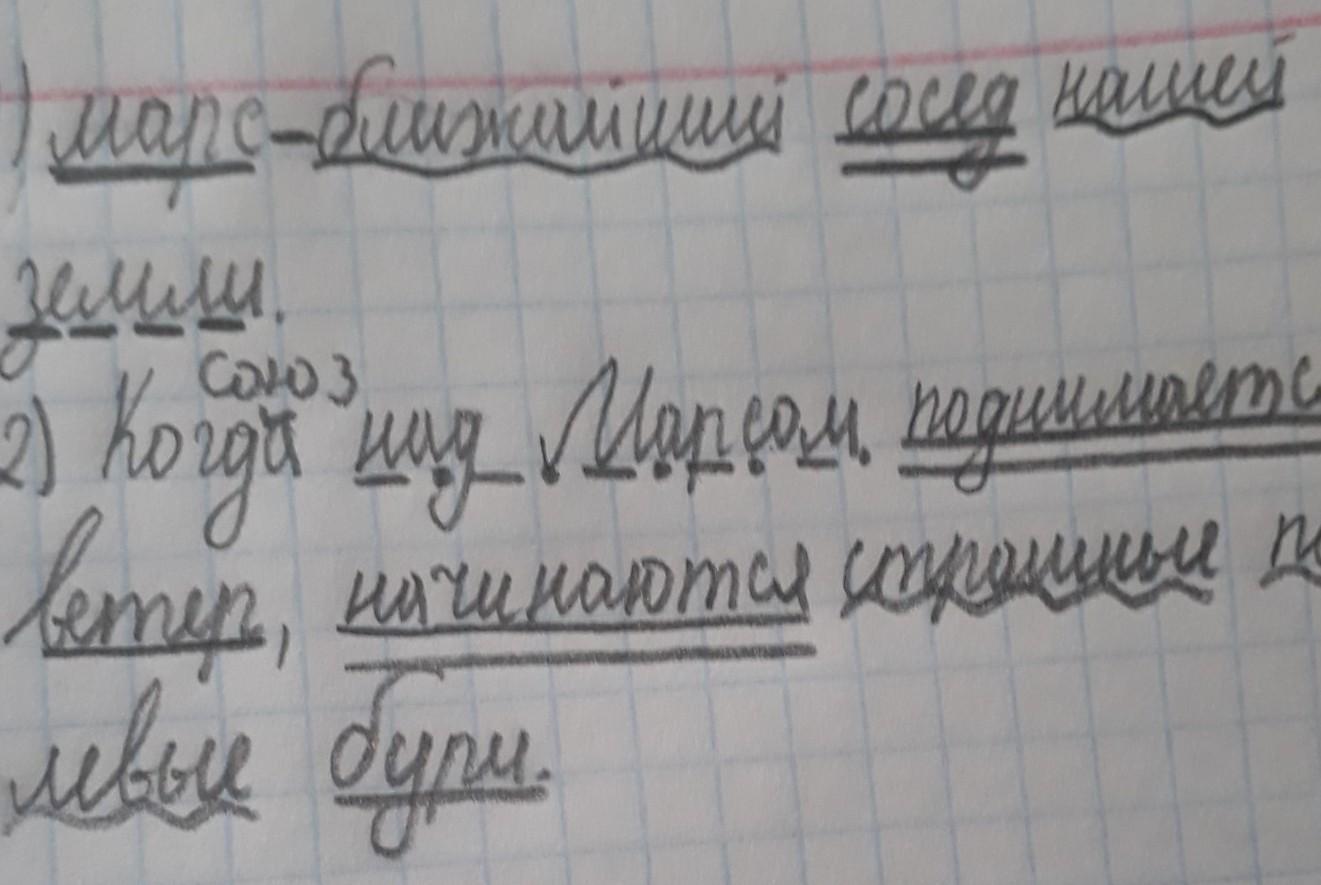 1) Марс - ближайший сосед нашей
земли.
союз
2) Когда над Марсом поднимаетс
ветер, начинаются страшные п
левые бури.